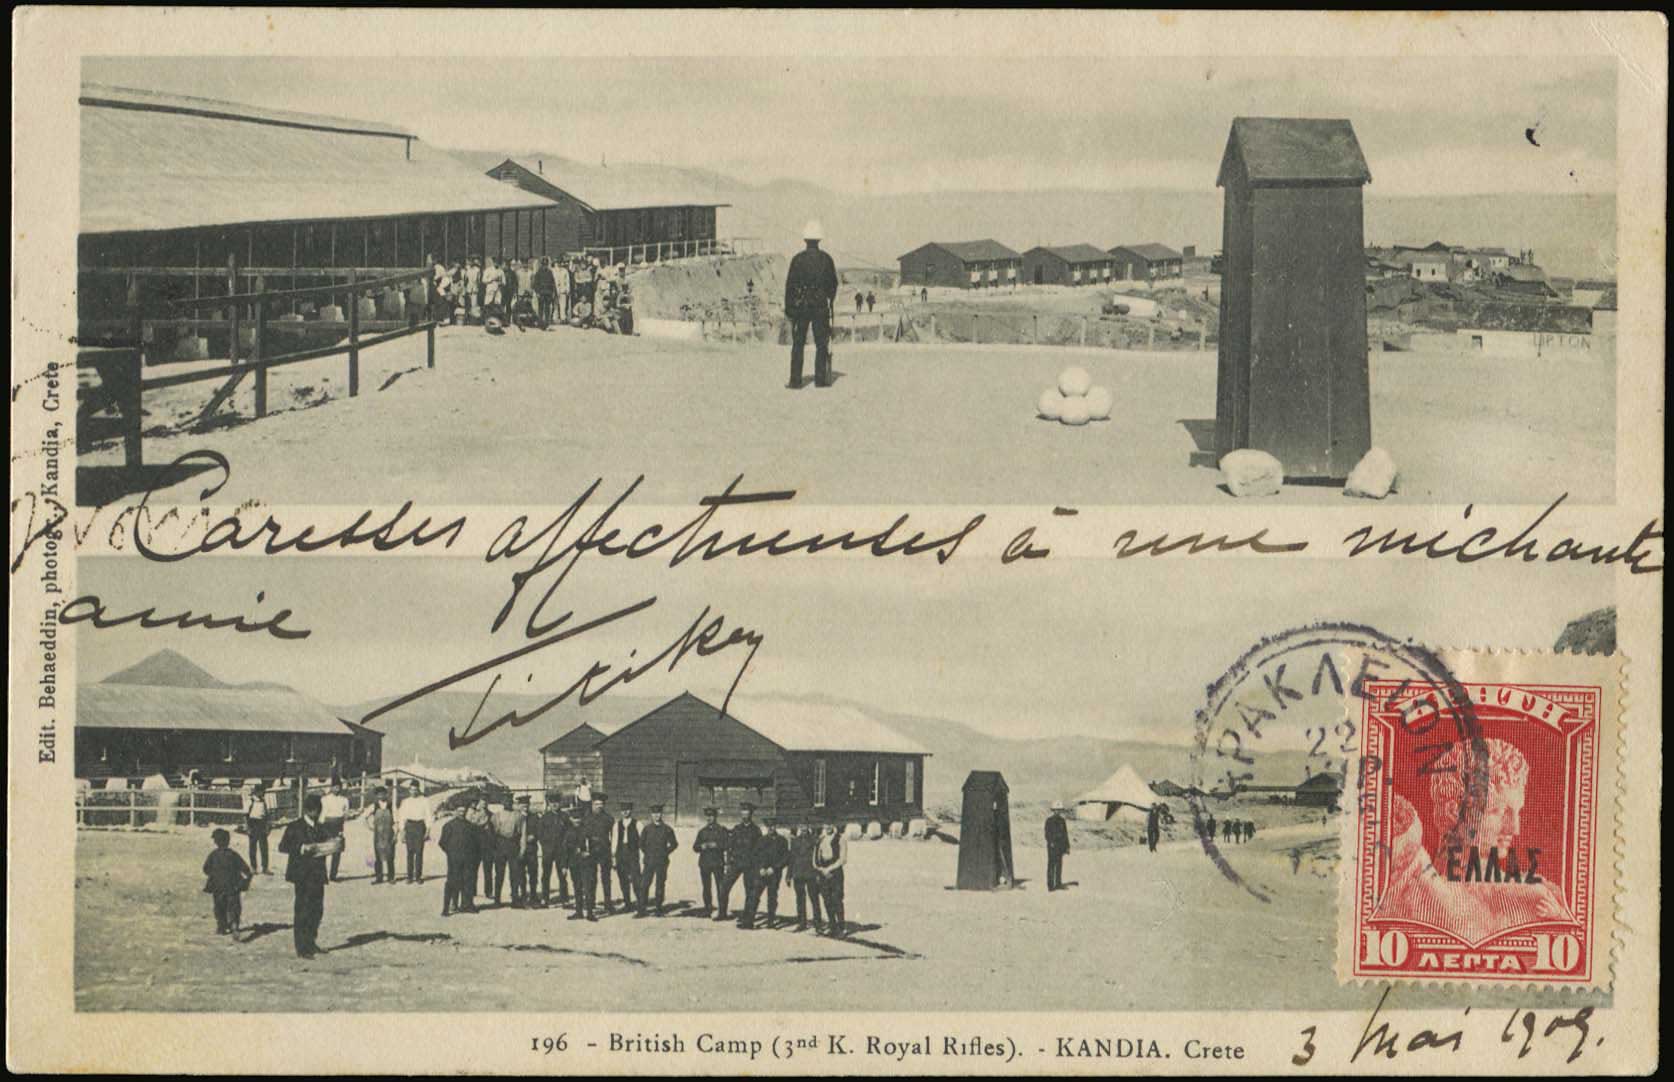 UPTON
Edit. Behaeddin, photogr., Kandia, Crete
Caresses affectueuses à une michante
amie
ΗΡΑΚΛΕΙΟΝ
22
ΕΛΛΑΣ
10 ΛΕΠΤΑ 10
196 - British Camp (3nd K. Royal Rifles). - KANDIA. Crete
3 Mai 1909.